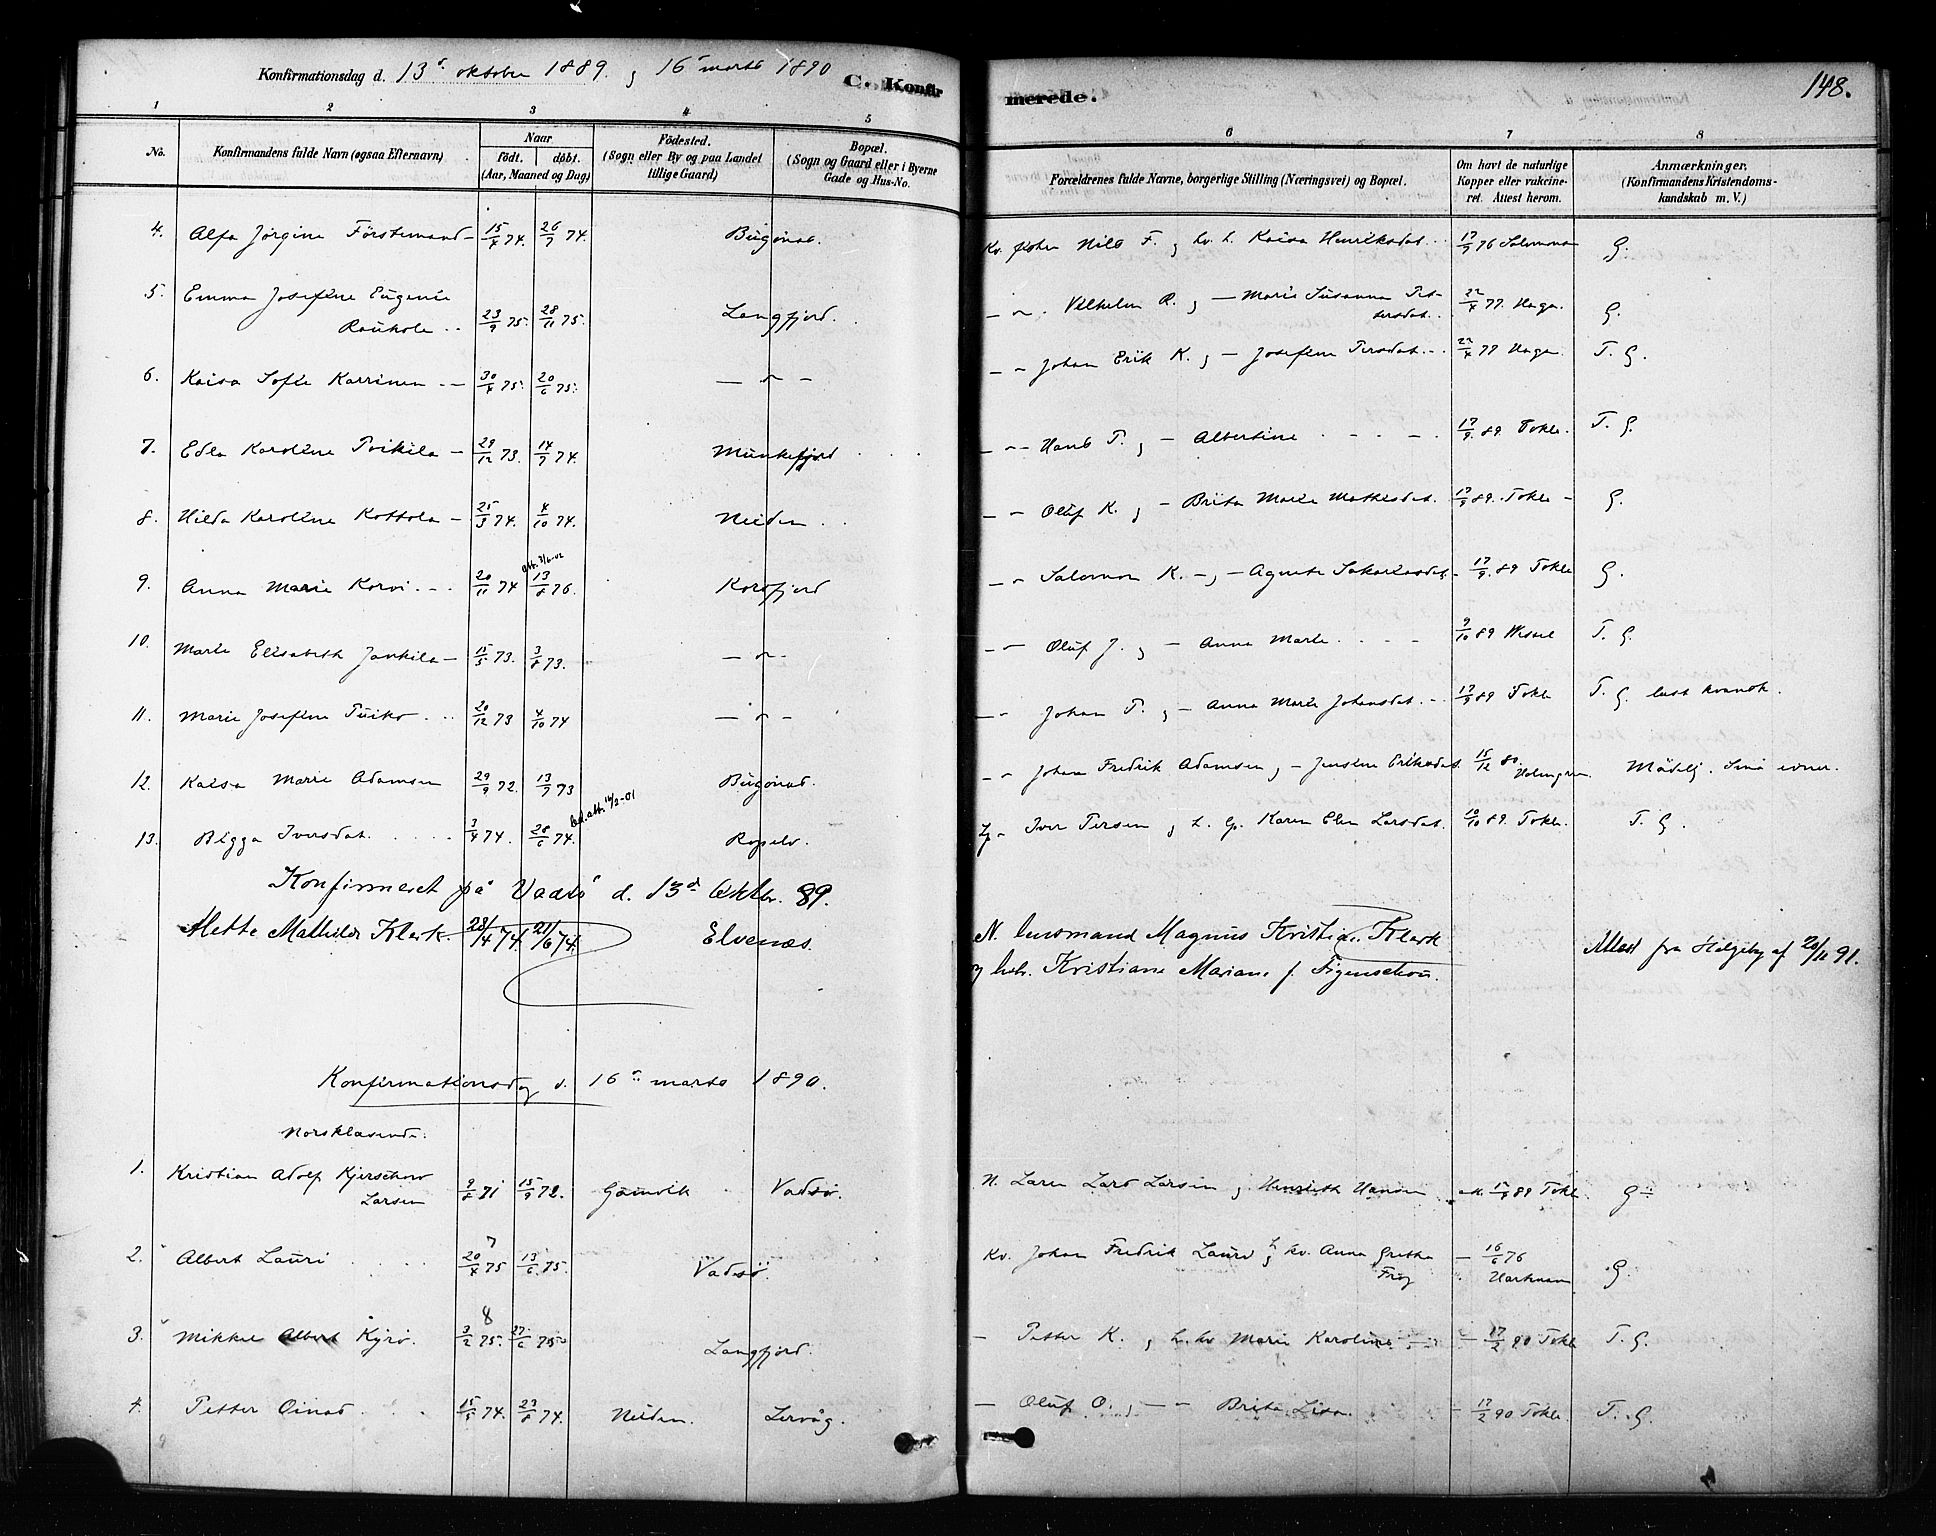 Konfirmationsdag d. 13de oktober 1889. og 16de marts 1890
C. Konfirmerede.
148.
1 2 3 4 5 6 7 8
No. Konfirmandens fulde Navn (ogsaa Efternavn) Naar födt. döbt. (Aar, Maaned og Dag) Födested. (Sogn eller By og paa Landet tillige Gaard) Bopæl. (Sogn og Gaard eller i Byerne Gade og Hus-No. Forældrenes fulde Navne, borgerlige Stilling (Næringsvei) og Bopæl. Om havt de naturlige Kopper eller vakcineret. Attest herom. Anmærkninger. (Konfirmandens Kristendomskundskab m. V.)
4. Alfa Jörgine Förstemand 15/4 74. 26/7 74. Bugönæs. Kv. fisker Nils F. og kv. L. Kaisa Henriksdat. 17/9 76 Salomonsen G.
5. Emma Josefine Eugenie
Raukola 23/9 75. 28/11 75. Langfjord. Vilhelm R. og — Marie Susanna Petersdat. 22/4 77. Haga. G.
6. Kaisa Sofie Karrinen 30/4 75. 20/6 75. — " — Johan Erik K. og — Josefine Persdat. 22/4 77 Haga. T. G.
7. Edla Karoline Poikila 29/12 73. 14/9 74. Munkefjord Hans P. og — Albertine 17/9. 89. Tokle. T. G.
8. Hilda Karoline Kottola 25/3 74. 4/10 74. Neiden Oluf K. og — Brita Marie Mattisdat. 17/9 89. Tokle G.
9. Anna Marie Korvi 20/11 74 att. 3/6-02 13/8 76. Korsfjord Salomon K. og — Agneta Sakariasdat. 17/9. 89 Tokle G.
10. Marie Elisabeth Jankila 15/5 73. 3/8 73. — " — Oluf J. og — Anna Marie 9/10 89 Wessel T. G.
11. Marie Josefine Tuiko 20/12 73 4/10 74 — " — Johan T. og — Anna Marie Johansdat. 17/9 89 Tokle T. G. læst kvænsk.
12. Kaisa Marie Adamsen 29/9 72. 13/7 73 Bugönæs. Johan Fredrik Adamsen og — Jensine Eriksdat. 15/12 80. Holmgren. Mådelig. Små evner.
13. Bigga Iversdat. 3/4 74. 28/6 74. bed. att. 14/2-01 Ropelv. Lp. Iver Persen og L. Lp. Karen Elen Larsdat. 10/10 89. Tokle. T. G.
Konfirmeret på Vadsö d. 13de Oktbr. 89.
Mette Mathilde Klerk. 28/4 74. 21/6 74. Elvenæs. N. husmand Magnus Kristian Klerk
og hust. Kristiane Mariane f. Figenschou. Attest fra Helgeby af 20/11 91.
Konfirmationsdag d. 16de marts 1890.
Norsklæsende:
1. Kristian Adolf Kjerschow
Larsen 9/8 71 15/9 72. Gamvik Vadsö. N. Lars Larsen og Henriette Hansen att. 17/9 89 Tokle G÷
2. Albert Lauri 20/4 75 7 13/6 75. Vadsö. Kv. Johan Fredrik Lauri og L. kv. Anna Gretha Frög — 16/6 76 Harkman G.
3. Mikkel Albert Kyrö. 3/2 75. 8 27/6 75 Langfjord. — Petter K. og L. kv Marie Karoline — 17/2 90 Tokle T. G.
4. Petter Oinas 15/5 74. 23/8 74. Neiden. Lervåg. — Oluf O. og — — Brita Lisa. — 17/2 90 Tokle. T. G.